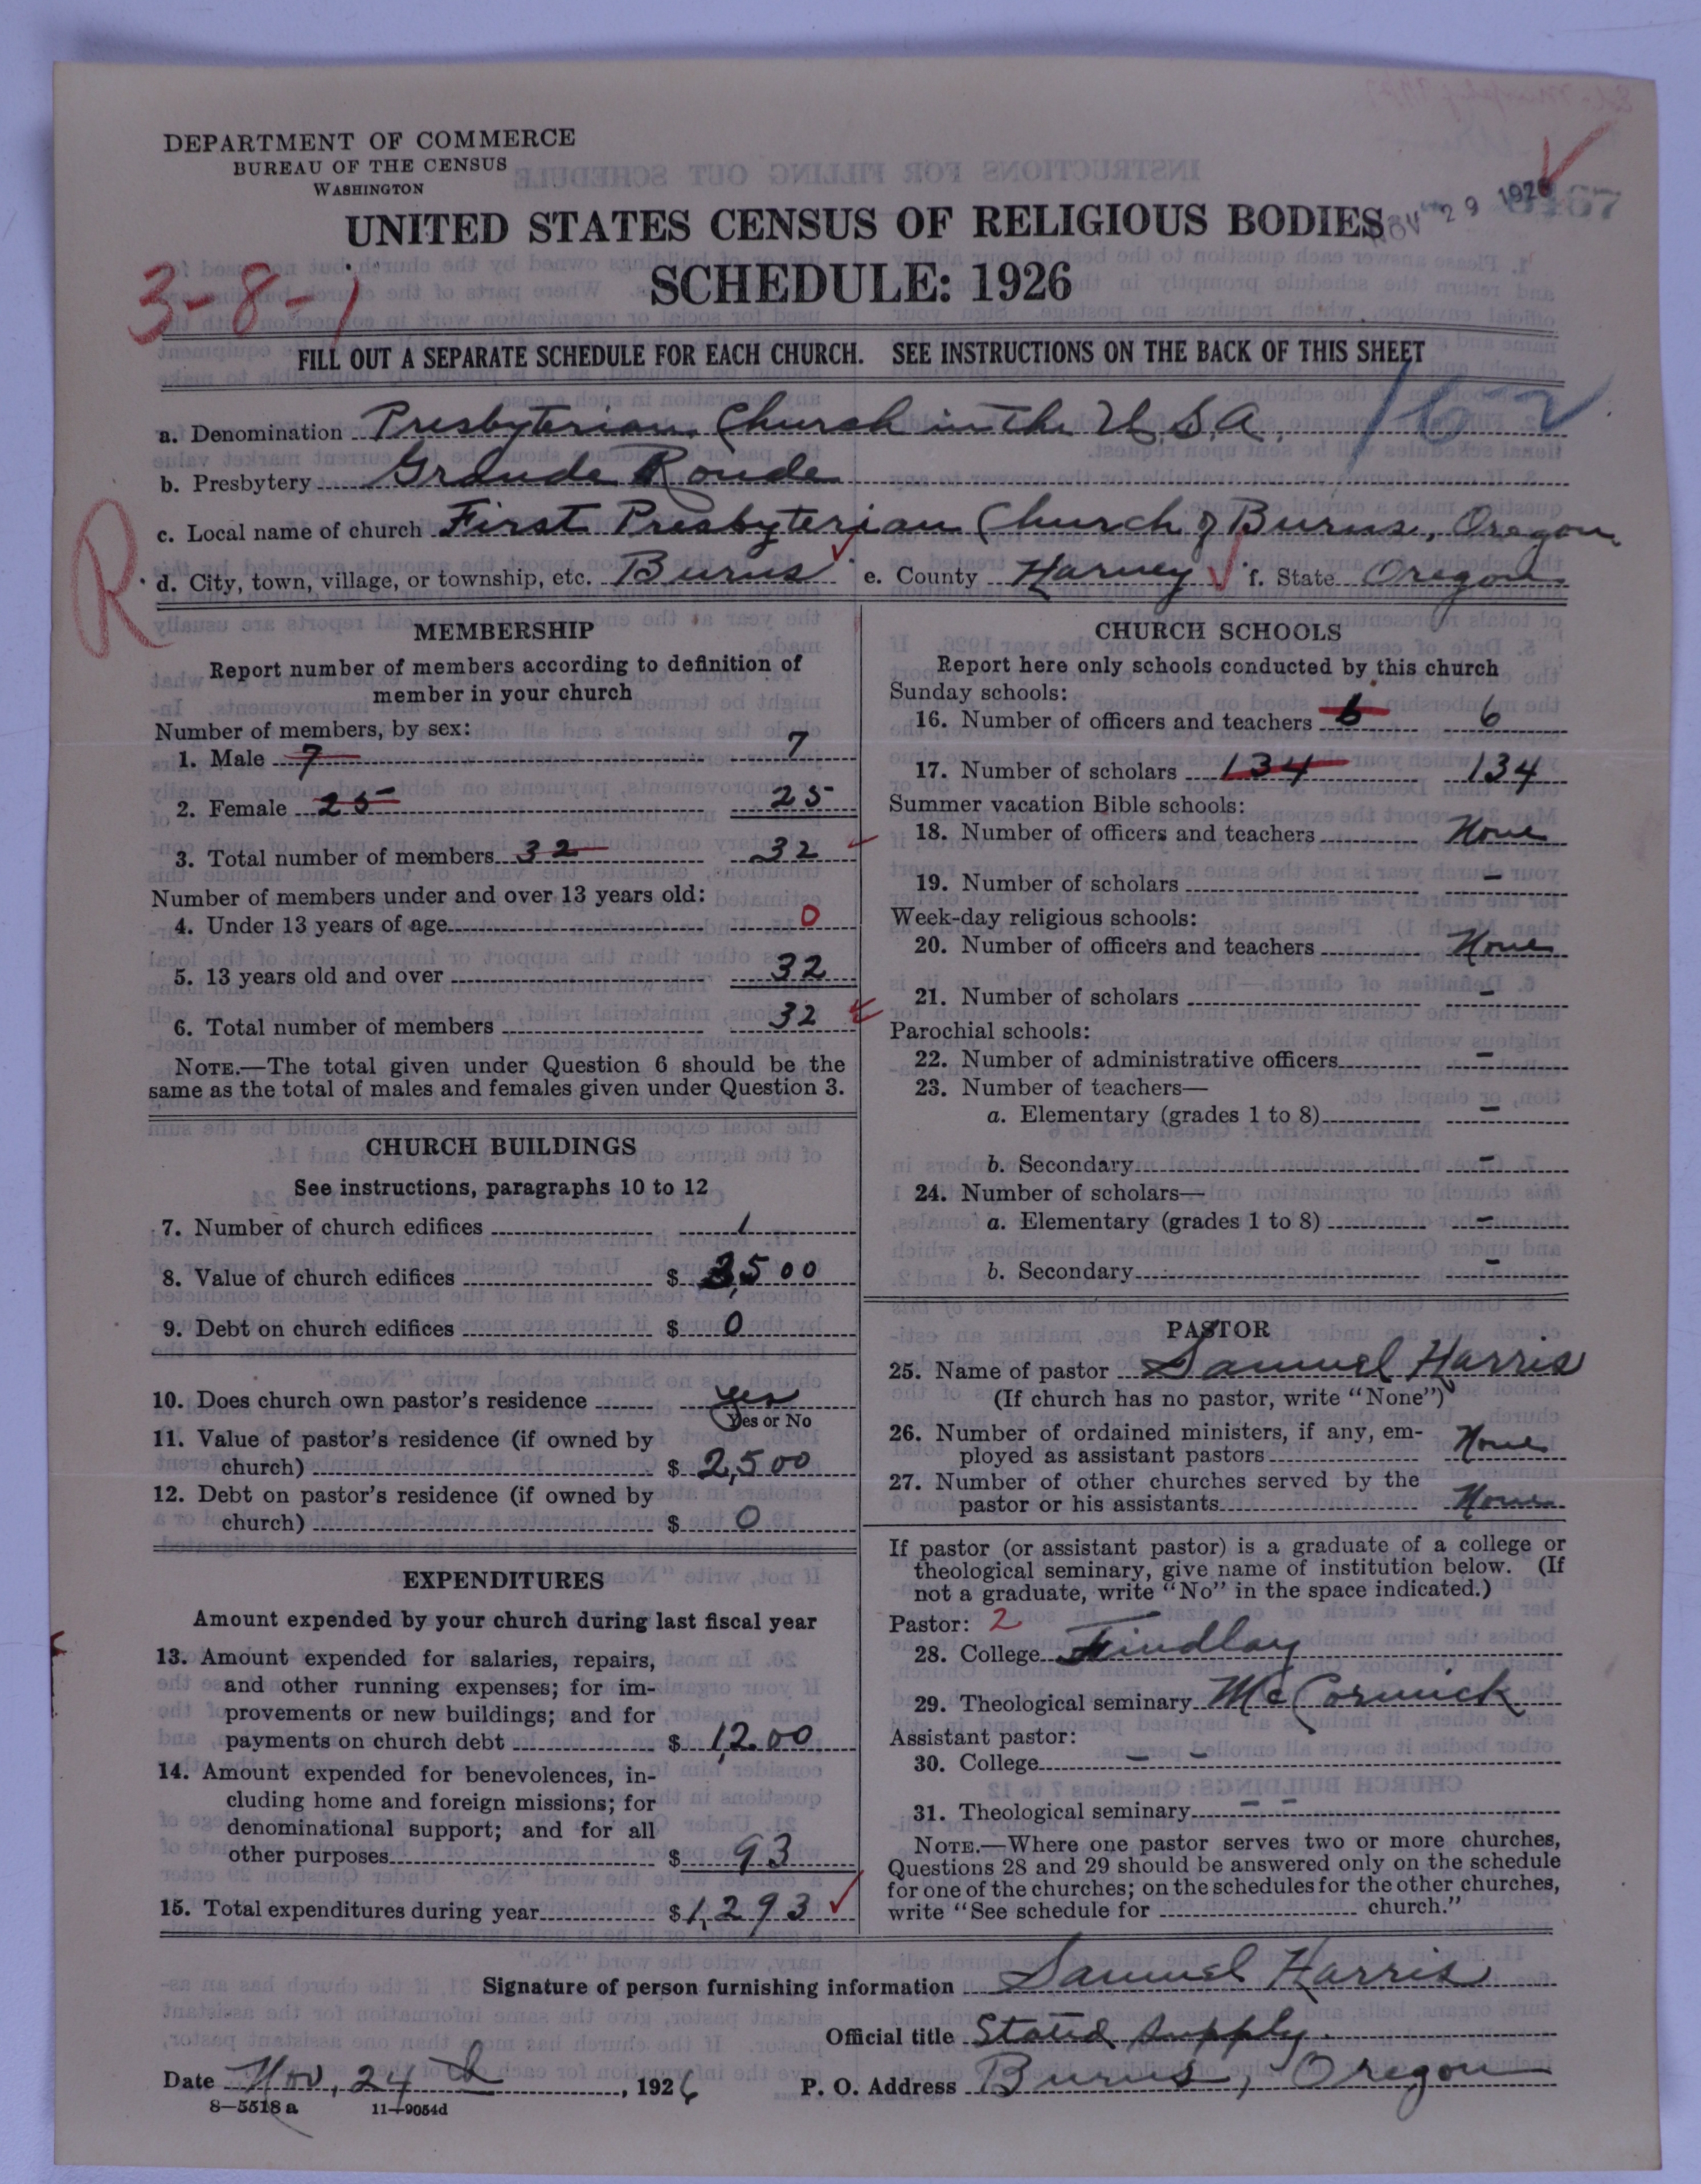 DEPARTMENT OF COMMERCE
BUREAU OF THE CENSUS
WASHINGTON
UNITED STATES CENSUS OF RELIGIOUS BODIES
NOV 29 1926
SCHEDULE: 1926
3-8-1
FILL OUT A SEPARATE SCHEDULE FOR EACH CHURCH. SEE INSTRUCTIONS ON THE BACK OF THIS SHEET
162
a. Denomination Presbyterian Church in the U.S.A.
b. Presbytery Grande Ronde
R
c. Local name of church First Presbyterian Church of Burns, Oregon
d. City, town, village, or township, etc. Burns e. County Harney f. State Oregon
MEMBERSHIP
Report number of members according to definition of
member in your church
Number of members, by sex:
1. Male 7 7
2. Female 25 25
3. Total number of members 32 32
Number of members under and over 13 years old:
4. Under 13 years of age 0
5. 13 years old and over 32
6. Total number of members 32
NOTE.—The total given under Question 6 should be the
same as the total of males and females given under Question 3.
CHURCH BUILDINGS
See instructions, paragraphs 10 to 12
7. Number of church edifices 1
8. Value of church edifices $ 3,500
9. Debt on church edifices $ 0
10. Does church own pastor's residence yes
Yes or No
11. Value of pastor's residence (if owned by
church) $ 2,500
12. Debt on pastor's residence (if owned by
church) $ 0
EXPENDITURES
Amount expended by your church during last fiscal year
13. Amount expended for salaries, repairs,
and other running expenses; for im-
provements or new buildings; and for
payments on church debt $ 1,200
14. Amount expended for benevolences, in-
cluding home and foreign missions; for
denominational support; and for all
other purposes $ 93
15. Total expenditures during year $ 1,293
CHURCH SCHOOLS
Report here only schools conducted by this church
Sunday schools:
16. Number of officers and teachers 6 6
17. Number of scholars 134 134
Summer vacation Bible schools:
18. Number of officers and teachers None
19. Number of scholars -
Week-day religious schools:
20. Number of officers and teachers None
21. Number of scholars -
Parochial schools:
22. Number of administrative officers -
23. Number of teachers—
a. Elementary (grades 1 to 8) -
b. Secondary -
24. Number of scholars—
a. Elementary (grades 1 to 8) -
b. Secondary -
PASTOR
25. Name of pastor Samuel Harris
(If church has no pastor, write "None")
26. Number of ordained ministers, if any, em-
ployed as assistant pastors None
27. Number of other churches served by the
pastor or his assistants None
If pastor (or assistant pastor) is a graduate of a college or
theological seminary, give name of institution below. (If
not a graduate, write "No" in the space indicated.)
Pastor: 2
28. College Findlay
29. Theological seminary McCormick
Assistant pastor:
30. College - -
31. Theological seminary - -
NOTE.—Where one pastor serves two or more churches,
Questions 28 and 29 should be answered only on the schedule
for one of the churches; on the schedules for the other churches,
write "See schedule for church."
Signature of person furnishing information Samuel Harris
Official title Stated Supply.
Date Nov, 24 , 1926 P. O. Address Burns, Oregon
8—5518 a 11—9054d